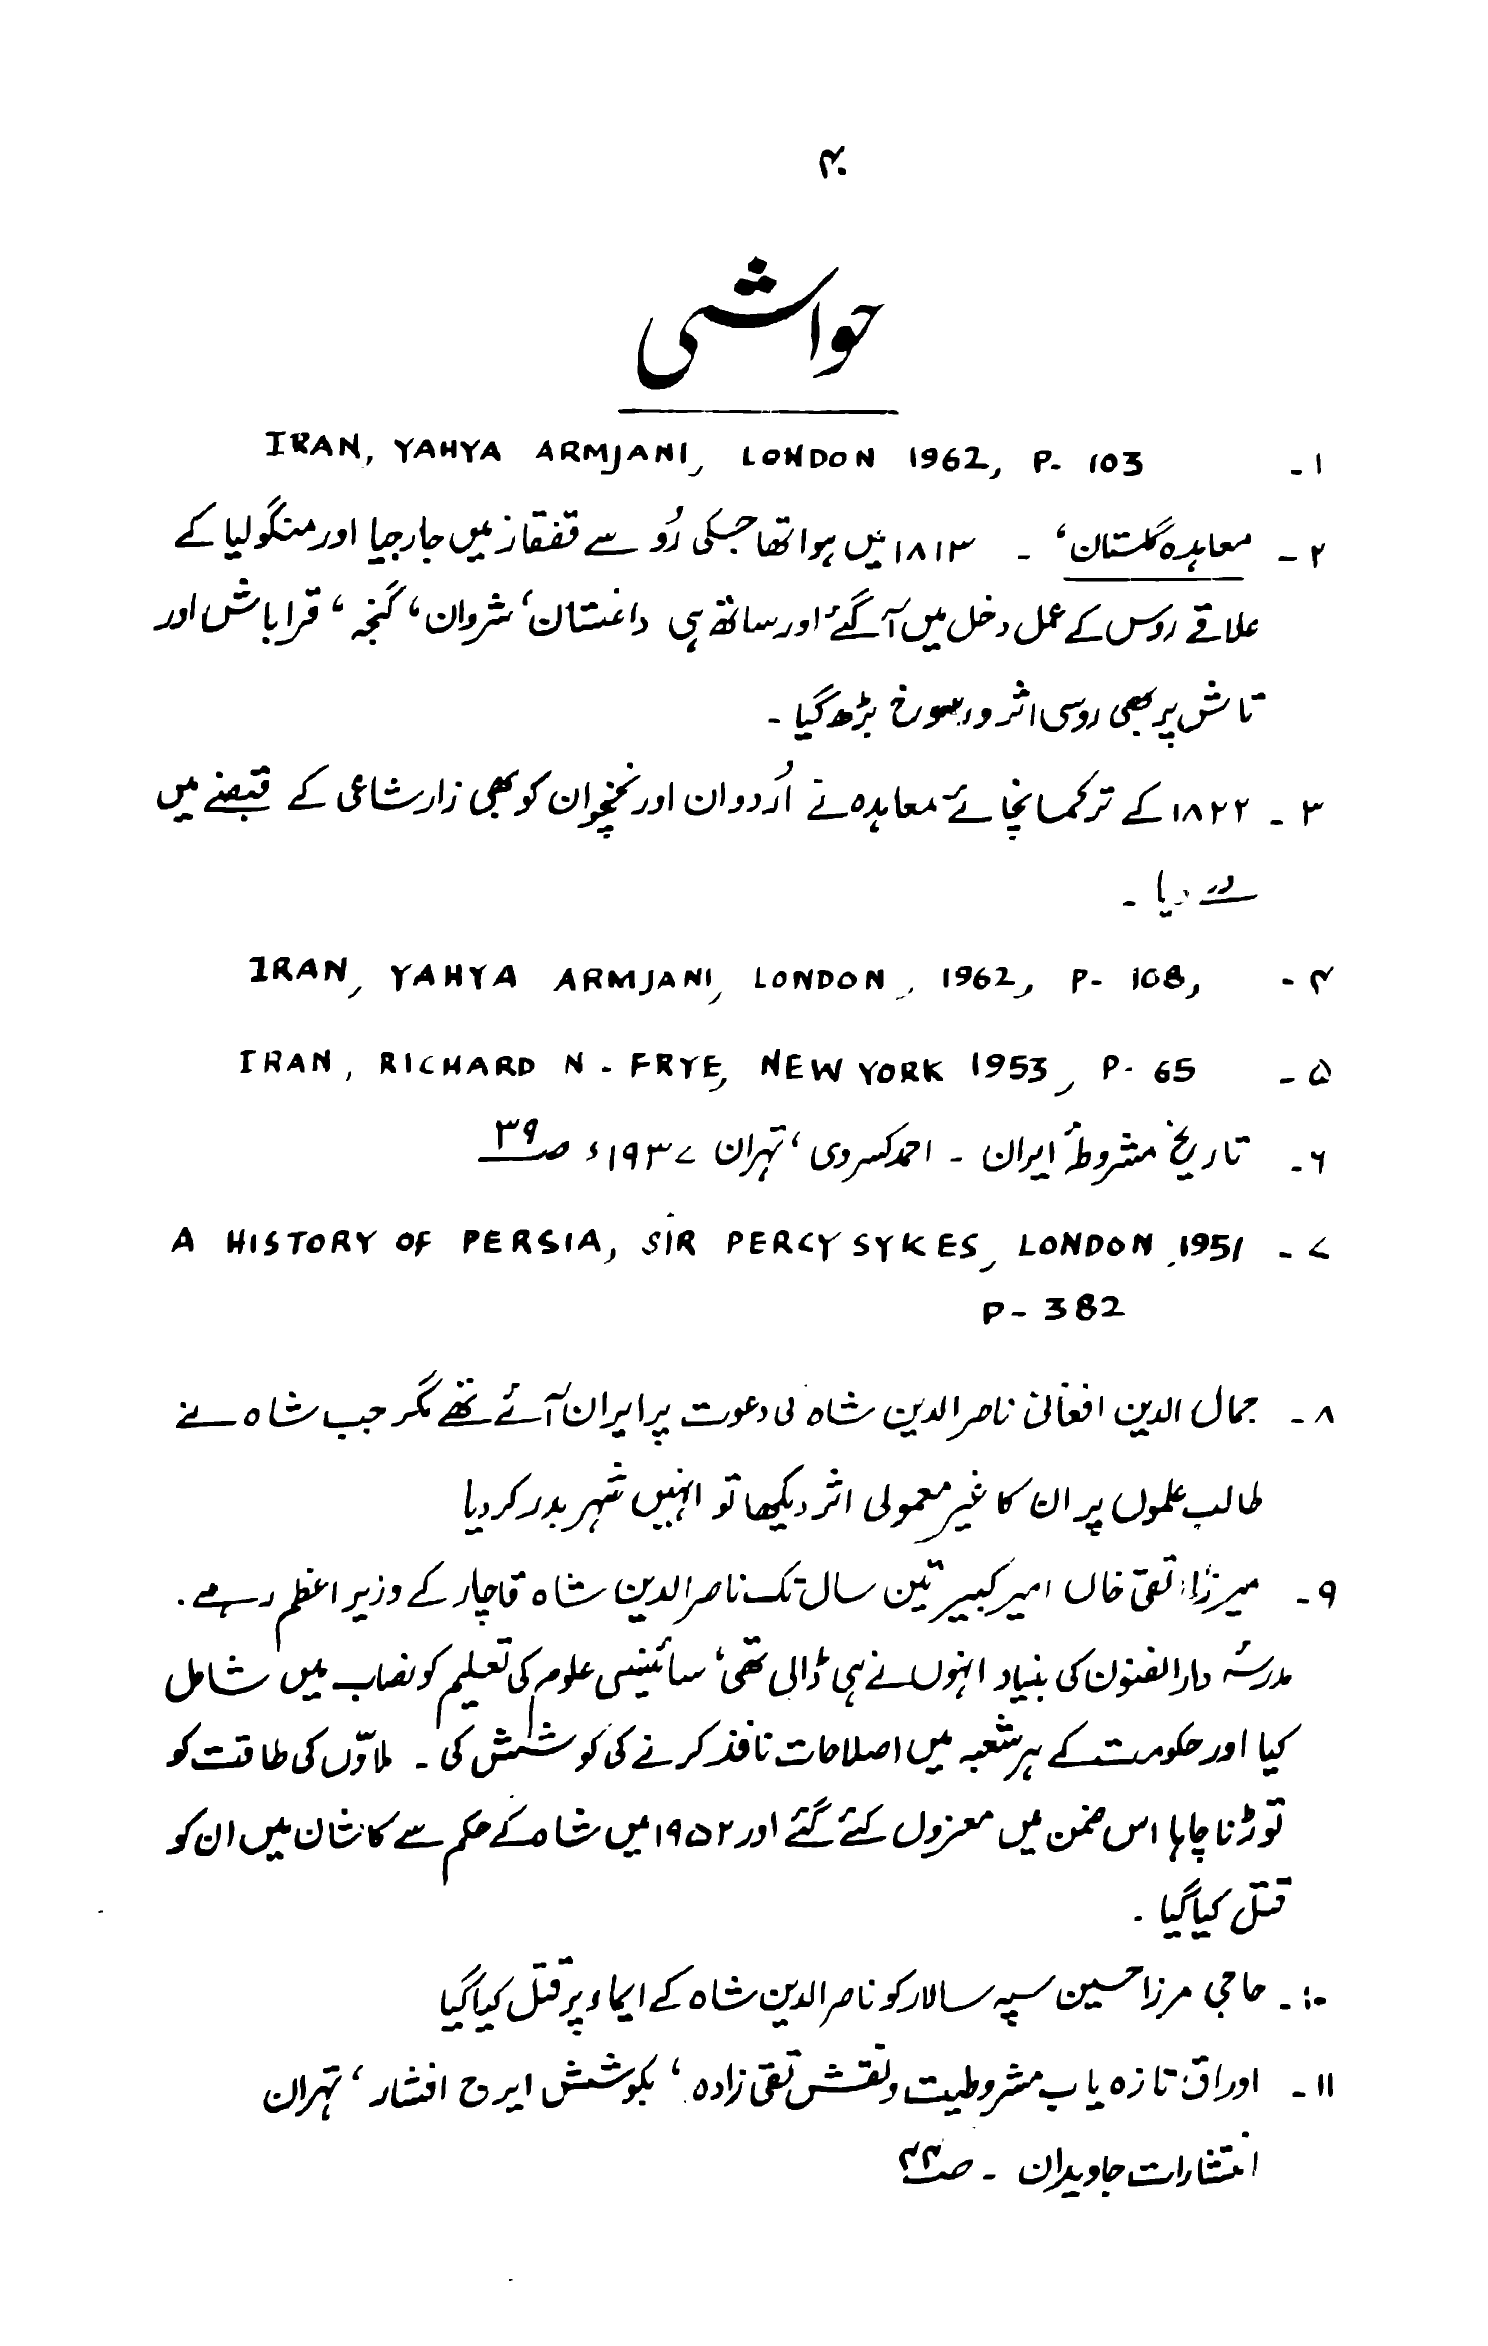 ۴۰
حواشی
۱- IRAN, YAHYA ARMJANI, LONDON 1962, P. 103
۲- معاہدہ گلستان، ۔ ۱۸۱۳ میں ہوا تھا جسکی رُو سے قفقاز میں جارجیا اور منگولیا کے
علاقے روس کے عمل دخل میں آ گئے اور ساتھ ہی داغستان، شروان، گنجہ، قراباش اور
تاش پر بھی روسی اثر و رسوخ بڑھ گیا ۔
۳- ۱۸۲۲ کے ترکمانچائے معاہدہ نے اُردوان اور نخچوان کو بھی زار شاعی کے قبضے میں
دے دیا ۔
۴- IRAN, YAHYA ARMJANI, LONDON, 1962, P- 108,
۵- IRAN, RICHARD N. FRYE, NEW YORK 1953, P. 65
۶- تاریخ مشروطۂ ایران ۔ احمد کسروی، تہران ۱۹۳۷ء ص ۳۹
۷- A HISTORY OF PERSIA, SIR PERCY SYKES, LONDON 1951
P- 382
۸- جمال الدین افغانی ناصر الدین شاہ کی دعوت پر ایران آئے تھے مگر جب شاہ نے
طالب علموں پر ان کا غیر معمولی اثر دیکھا تو انہیں شہر بدر کر دیا
۹- میرزا تقی خاں امیر کبیر تین سال تک ناصر الدین شاہ قاچار کے وزیر اعظم رہے ۔
مدرسۂ دار الفنون کی بنیاد انہوں نے ہی ڈالی تھی، سائینسی علوم کی تعلیم کو نصاب میں شامل
کیا اور حکومت کے ہر شعبہ میں اصلاحات نافذ کرنے کی کوشش کی ۔ ملاؤں کی طاقت کو
توڑنا چاہا اس ضمن میں معزول کئے گئے اور ۱۹۵۲ میں شاہ کے حکم سے کاشان میں ان کو
قتل کیا گیا ۔
۱۰- حاجی مرزا حسین سپہ سالار کو ناصر الدین شاہ کے ایماء پر قتل کیا گیا
۱۱- اوراق تازہ یاب مشروطیت و نقش تقی زادہ، بکوشش ایرج افشار، تہران
انتشارات جاویدان ۔ ص ۴۴